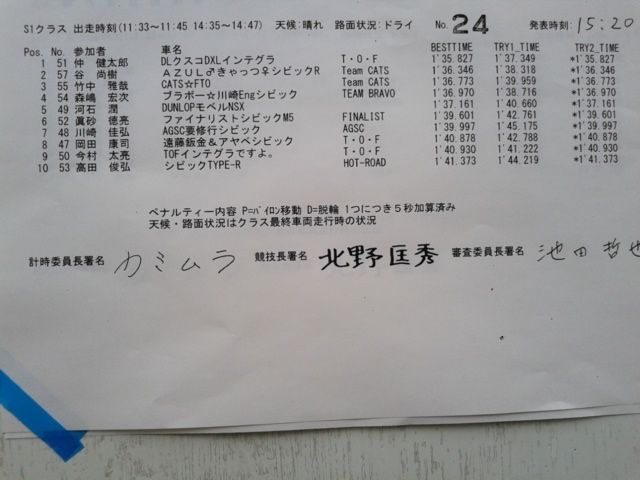 S1クラス 出走時刻(11:33～11:45 14:35～14:47) 天候:晴れ 路面状況:ドライ No. 24 発表時刻: 15:20
Pos. No. 参加者 車名 BESTTIME TRY1_TIME TRY2_TIME
1 51 仲 健太郎 DLクスコDXLインテグラ T・O・F 1'35.827 1'37.349 *1'35.827
2 57 谷 尚樹 AZUL♂きゃっつ♀シビックR Team CATS 1'36.346 1'38.318 *1'36.346
3 55 竹中 雅哉 CATS☆FTO Team CATS 1'36.773 1'39.959 *1'36.773
4 54 森嶋 宏次 ブラボー☆川崎Engシビック TEAM BRAVO 1'36.970 1'38.716 *1'36.970
5 49 河石 潤 DUNLOPモペルNSX 1'37.161 1'40.660 *1'37.161
6 52 眞砂 徳亮 ファイナリストシビックM5 FINALIST 1'39.601 1'42.761 *1'39.601
7 48 川崎 佳弘 AGSC要修行シビック AGSC 1'39.997 1'45.175 *1'39.997
8 47 岡田 康司 遠藤鈑金＆アヤベシビック T・O・F 1'40.930 1'42.788 *1'40.930
9 50 今村 太亮 TOFインテグラですよ。 T・O・F 1'40.931 1'42.222 *1'40.931
10 53 高田 俊弘 シビックTYPE-R HOT-ROAD 1'41.373 1'44.219 *1'41.373
ペナルティー内容 P=ﾊﾟｲﾛﾝ移動 D=脱輪 1つにつき５秒加算済み
天候・路面状況はクラス最終車両走行時の状況
計時委員長署名 カミムラ 競技長署名 北野匡秀 審査委員長署名 池田哲也